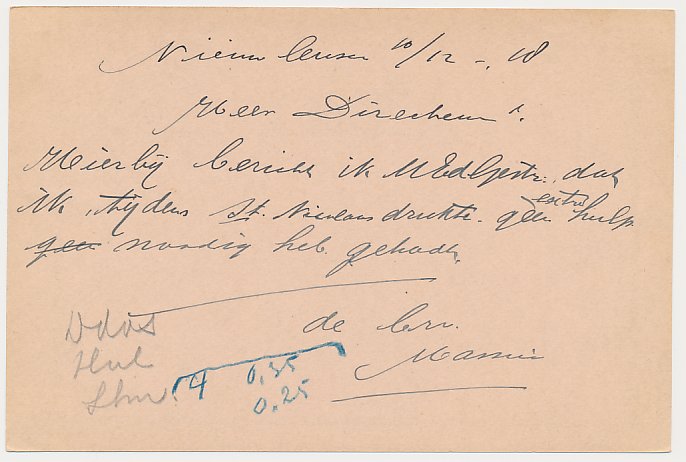 Nieuw Leusen 10/12 -. 18
Heer Directeur.
Hierbij bericht ik UEdGestr., dat
ik, tijdens St. Nicolaas drukte. geen extra hulp
geen noodig heb gehad.
de brv.
4 0.35
0.25